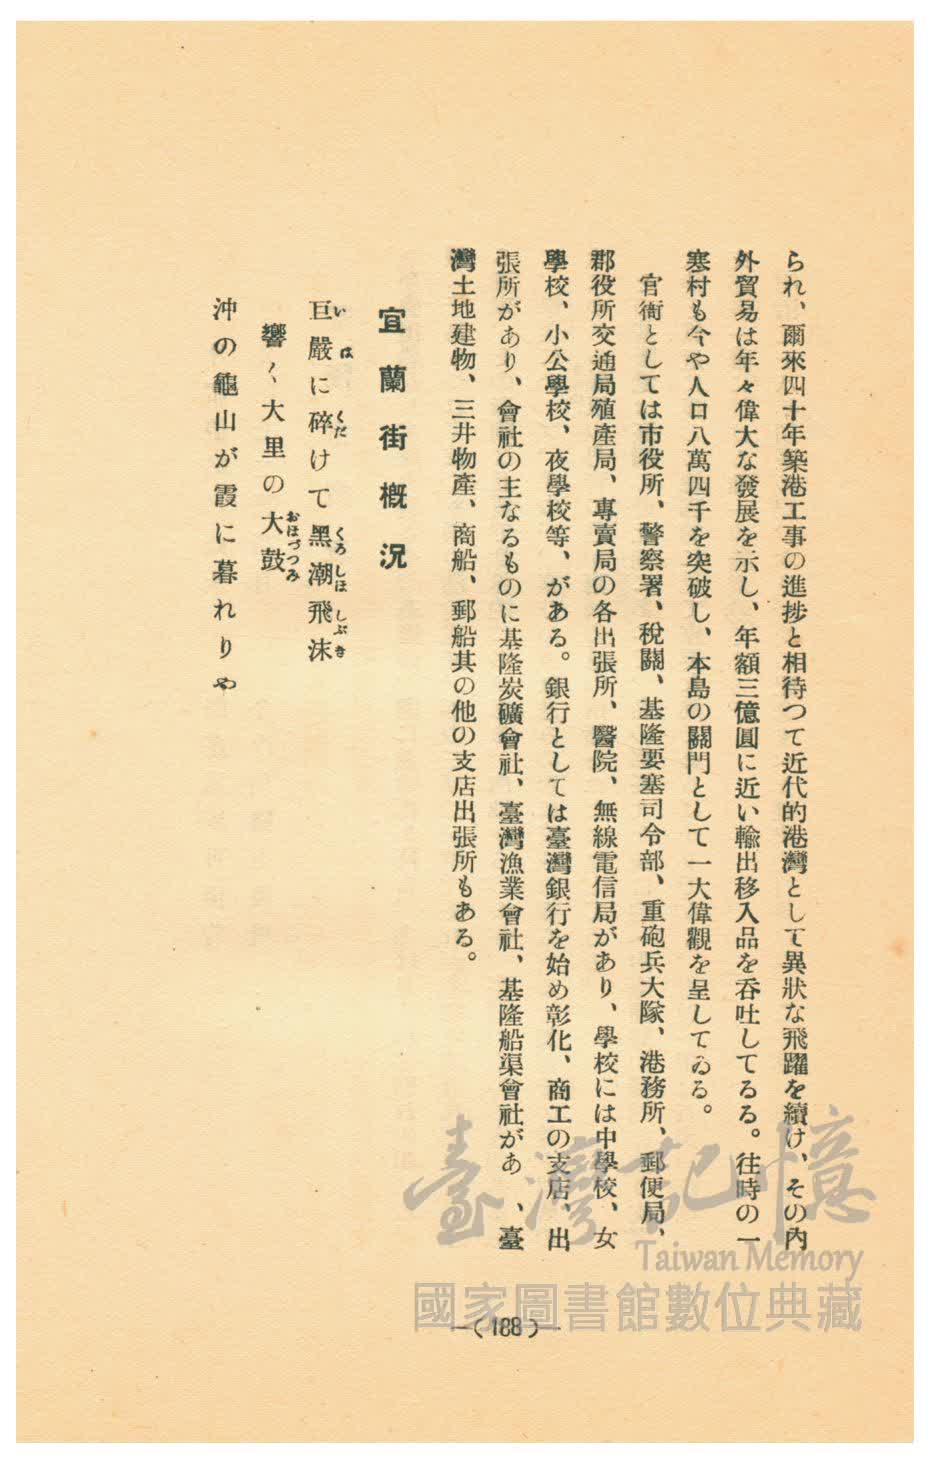 られ、爾來四十年築港工事の進捗と相待つて近代的港灣として異狀な飛躍を續け、その內
外貿易は年々偉大な發展を示し、年額三億圓に近い輸出移入品を呑吐してゐる。往時の一
寒村も今や人口八萬四千を突破し、本島の關門として一大偉觀を呈してゐる。
官衙としては市役所、警察署、稅關、基隆要塞司令部、重砲兵大隊、港務所、郵便局、
郡役所交通局殖產局、專賣局の各出張所、醫院、無線電信局があり、學校には中學校、女
學校、小公學校、夜學校等、がある。銀行としては臺灣銀行を始め彰化、商工の支店、出
張所があり、會社の主なるものに基隆炭礦會社、臺灣漁業會社、基隆船渠會社があ 、臺
灣土地建物、三井物產、商船、郵船其の他の支店出張所もある。
宜蘭街槪況
巨嚴に碎けて黑潮飛沫
いは くだ くろしほしぶき
響く大里の大鼓
おほづつみ
沖の龜山が霞に暮れりや
—(188)—
臺灣記憶
Taiwan Memory
國家圖書館數位典藏